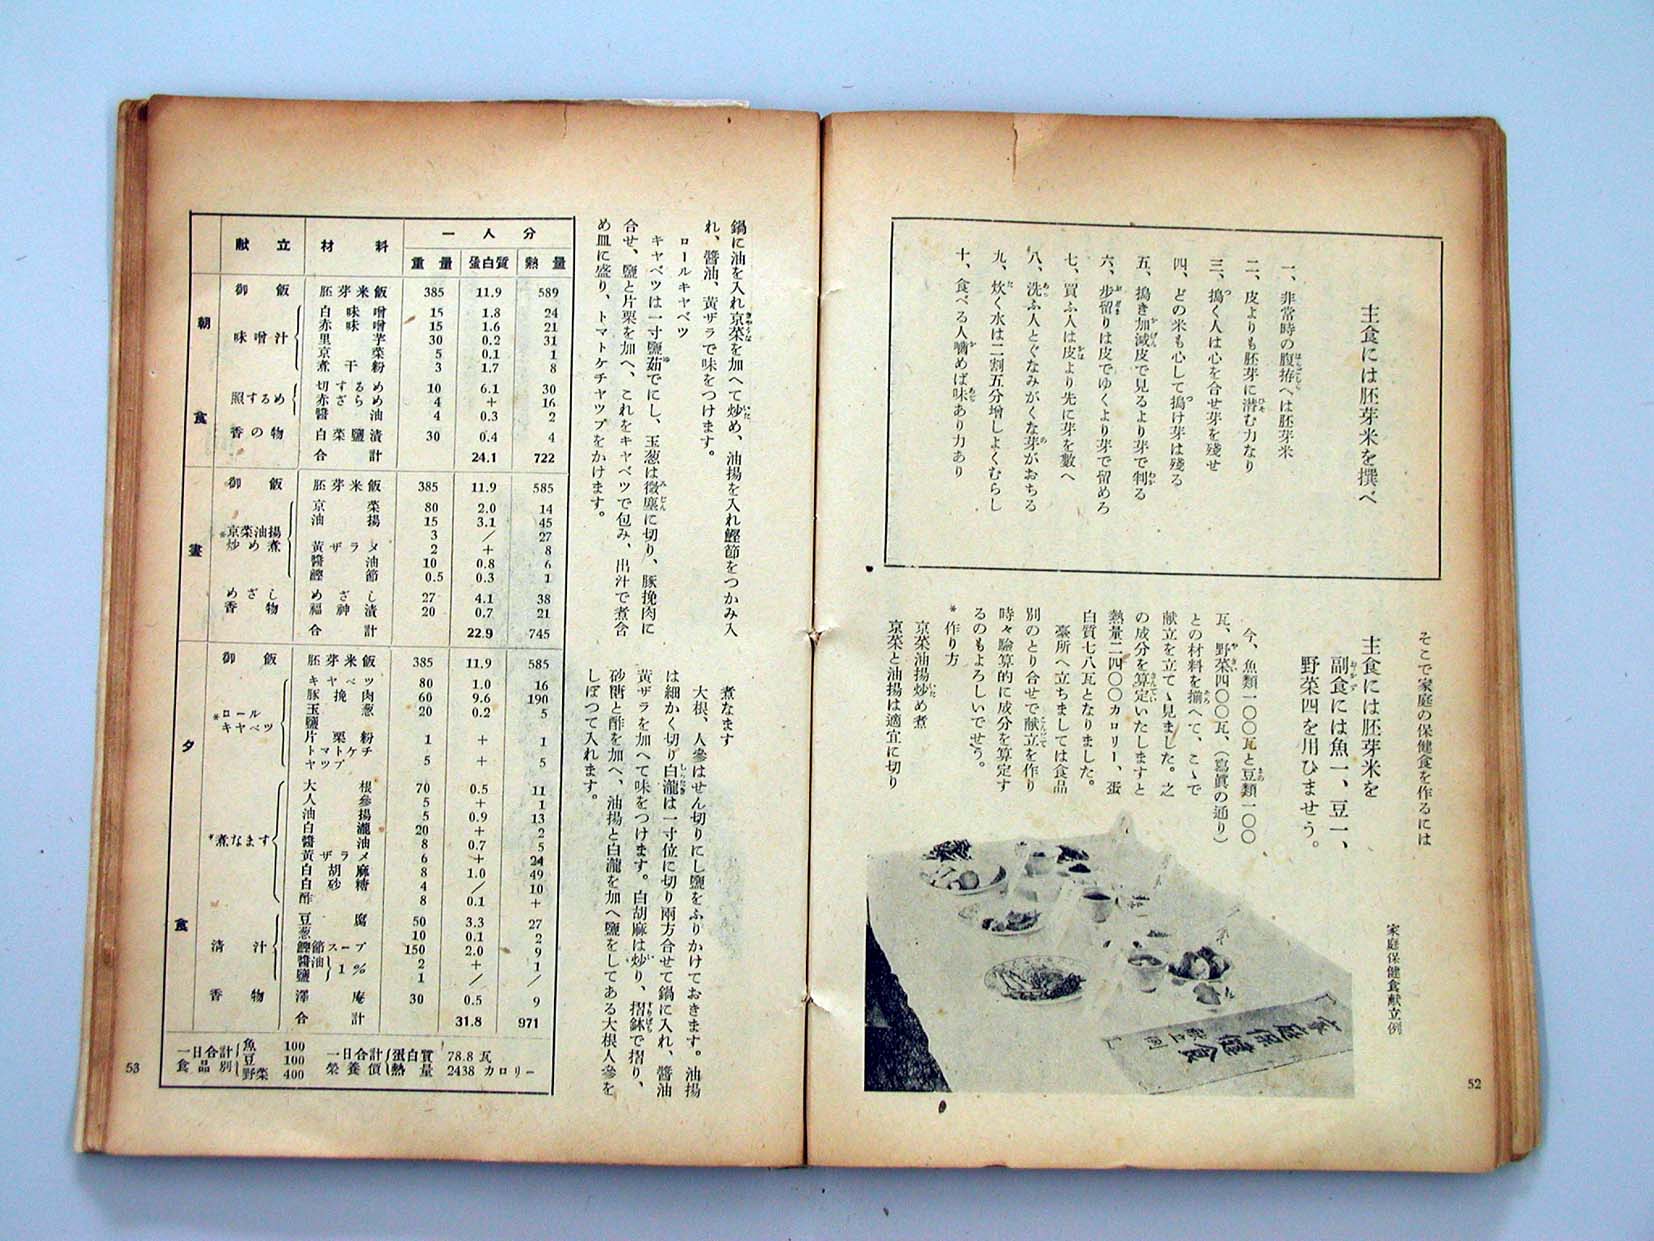 主食には胚芽米を撰べ
一、非常時の腹拵へは胚芽米
二、皮よりも胚芽に潜む力なり
三、搗く人は心を合せ芽を殘せ
四、どの米も心して搗け芽は殘る
五、搗き加減皮で見るより芽で判る
六、步留りは皮でゆくより芽で留めろ
七、買ふ人は皮より先に芽を數へ
八、洗ふ人とぐなみがくな芽がおちる
九、炊く水は二割五分增しよくむらし
十、食べる人嚙めば味あり力あり
そこで家庭の保健食を作るには
主食には胚芽米を
副食には魚一、豆一、
野菜四を用ひませう。
今、魚類一〇〇瓦と豆類一〇〇
瓦、野菜四〇〇瓦、(寫眞の通り)
との材料を揃へて、こゝで
献立を立てゝ見ました。之
の成分を算定いたしますと
熱量二四〇〇カロリー、蛋
白質七八瓦となりました。
臺所へ立ちましては食品
別のとり合せで献立を作り
時々驗算的に成分を算定す
るのもよろしいでせう。
*作り方
京菜油揚炒め煮
京菜と油揚は適宜に切り
家庭保健食献立例
家庭保健食
献立例
52
鍋に油を入れ京菜を加へて炒め、油揚を入れ鰹節をつかみ入
れ、醬油、黃ザラで味をつけます。
ロールキヤベツ
キャベツは一寸鹽茹でにし、玉葱は微塵に切り、豚挽肉に
合せ、鹽と片栗を加へ、これをキャベツで包み、出汁で煮含
め皿に盛り、トマトケチャツプをかけます。
煮なます
大根、人參はせん切りにし鹽をふりかけておきます。油揚
は細かく切り白瀧は一寸位に切り兩方合せて鍋に入れ、醬油
黃ザラを加へて味をつけます。白胡麻は炒り、摺鉢で摺り、
砂糖と酢を加へ、油揚と白瀧を加へ鹽をしてある大根人參を
しぼつて入れます。
献立 材料 一人分
重量 蛋白質 熱量
朝食
御飯 胚芽米飯 385 11.9 589
味噌汁 白味噌 15 1.8 24
赤味噌 15 1.6 21
里芋 30 0.2 31
京菜 5 0.1 1
煮干粉 3 1.7 8
照するめ 切するめ 10 6.1 30
赤ざらめ 4 + 16
醬油 4 0.3 2
香の物 白菜鹽漬 30 0.4 4
合計 24.1 722
晝
御飯 胚芽米飯 385 11.9 585
*京菜油揚炒め煮 京菜 80 2.0 14
油揚 15 3.1 45
3 / 27
黃ザラメ 2 + 8
醬油 10 0.8 6
鰹節 0.5 0.3 1
めざし めざし 27 4.1 38
香物 福神漬 20 0.7 21
合計 22.9 745
夕食
御飯 胚芽米飯 385 11.9 585
*ロールキヤベツ キャベツ 80 1.0 16
豚挽肉 60 9.6 190
玉葱 20 0.2 5
鹽
片栗粉 1 + 1
トマトケチヤツプ 5 + 5
*煮なます 大根 70 0.5 11
人參 5 + 1
油揚 5 0.9 13
白瀧 20 + 2
醬油 8 0.7 5
黃ザラメ 6 + 24
白胡麻 8 1.0 49
白砂糖 4 / 10
酢 8 0.1 +
清汁 豆腐 50 3.3 27
葱 10 0.1 2
鰹節スープ 150 2.0 9
醬油 1% 2 + 1
鹽 1 / /
香物 澤庵 30 0.5 9
合計 31.8 971
一日合計食品別 魚 100
豆 100
野菜 400
一日合計榮養價 蛋白質 78.8 瓦
熱量 2438 カロリー
53